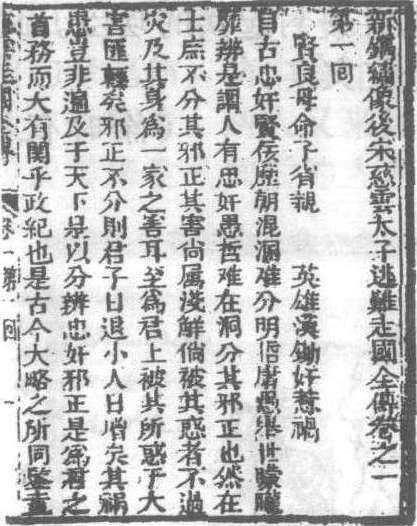 新鐫繡像後宋慈雲太子逃難走國全傳卷之一
第一回
賢良母命子省親　英雄漢鋤奸惹禍
自古忠奸賢佞靡朝混溷难分明俗庸愚舉世矇矓
靡辨是謂人有忠奸愚哲难在洞分其邪正也然在
士庶不分其邪正其害尙属淺鮮倘被其惑者不過
灾及其身為一家之害耳至為君上被其所惑于大
害匪輕矣邪正不分則君子日退小人日增矣其禍
患豈非遍及于天下是以分辨忠奸邪正是為君之
首務而大有関乎政紀也是古今大略之所同鑒
走國全傳　卷一　第一回　一